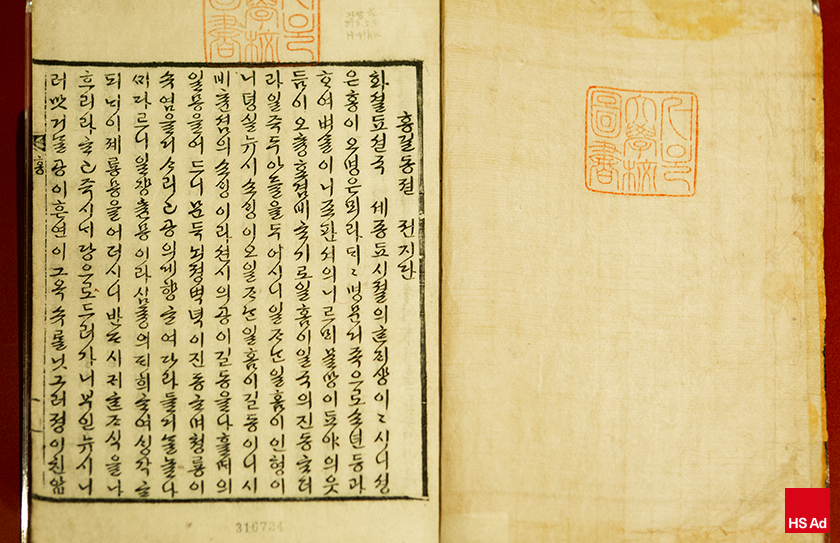 홍길동젼 권지단
화셜 됴션국 셰죵됴 시졀의 ᄒᆞᆫ ᄌᆡ샹이 〻시니 셩
은 홍이오 명은 뫼라 ᄃᆡ〻 명문거죡으로 쇼년 등과
ᄒᆞ여 벼슬이 니조판셔의 니르ᄆᆡ 물망이 됴야의 읏
듬이오 츙효겸비ᄒᆞ기로 일홈이 일국의 진동ᄒᆞ더
라 일즉 두 아들을 두어시니 일ᄌᆞᄂᆞᆫ 일홈이 인형이
니 뎡실 뉴시 쇼ᄉᆡᆼ이오 일ᄌᆞᄂᆞᆫ 일홈이 길동이니 시
비 츈셤의 쇼ᄉᆡᆼ이라 션시의 공이 길동을 나흘 ᄯᆡ의
일몽을 어드니 문득 뇌졍벽녁이 진동ᄒᆞ며 쳥룡이
슈염을 거ᄉᆞ리고 공의게 향ᄒᆞ여 다라들거ᄂᆞᆯ 놀나
ᄭᆡ다르니 일쟝츈몽이라 심즁의 ᄃᆡ희ᄒᆞ여 ᄉᆡᆼ각ᄒᆞ
되 ᄂᆡ 이제 룡몽을 어더시니 반ᄃᆞ시 귀ᄒᆞᆫ ᄌᆞ식을 나
흐리라 ᄒᆞ고 즉시 ᄂᆡ당으로 드러가니 부인 뉴시 니
러 맛거ᄂᆞᆯ 공이 흔연이 그 옥슈를 닛그러 졍이 친압
홍
316724
HS Ad